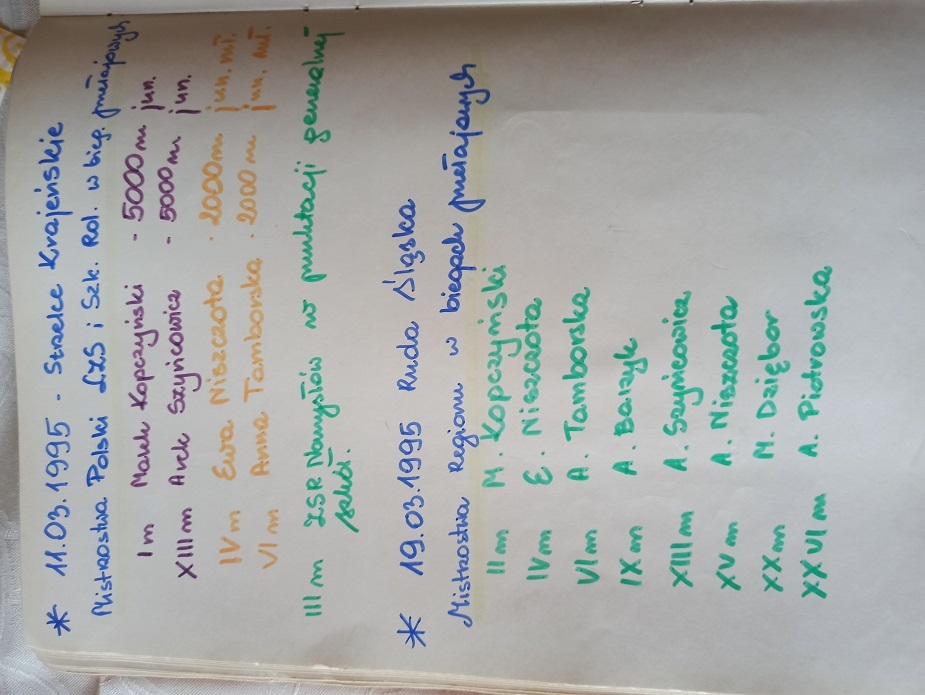 * 11.03.1995 - Strzelce Krajeńskie
Mistrzostwa Polski LZS i Szk. Rol. w bieg. przełajowych
I m Marek Kopczyński - 5000 m jun.
XIII m Arek Szyńcowicz - 5000 m jun.
IV m Ewa Niszczota - 2000 m jun. mł.
VI m Anna Tamborska - 2000 m jun. mł.
III m ZSR Namysłów w punktacji generalnej
szkół.
* 19.03.1995 Ruda Śląska
Mistrzostwa Regionu w biegach przełajowych
II m M. Kopczyński
IV m E. Niszczota
VI m A. Tamborska
IX m A. Barzyk
XIII m A. Szyńcowicz
XV m A. Niszczota
XX m M. Dziębor
XXVI m A. Piotrowska